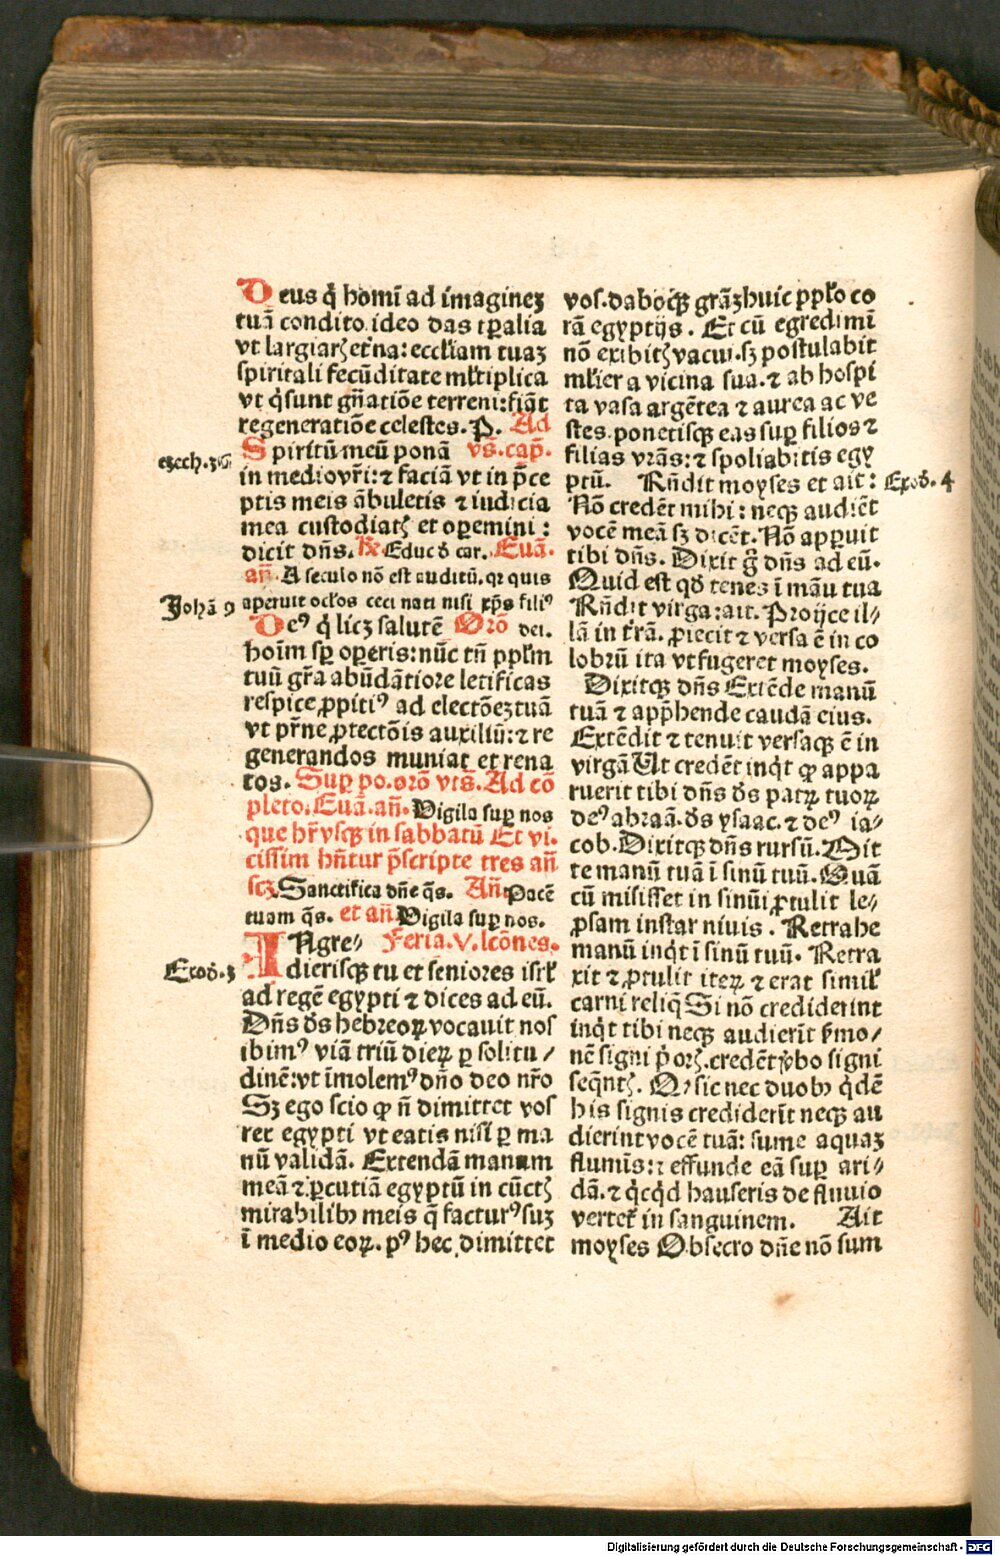 Deus q̇ homī ad imagineꝫ
tuā condito. ideo das tꝑalia
vt largiarꝭ et̾na: eccl̄iam tuaꝫ
spiritali fecūditate ml̄tiplica
vt q̇ sunt gn̄atiōe terreni: fiāt
regeneratiōe celestes. P̲. Ad
Spiritū meū ponā vs̄. cap̄.
ezech. 36
in medio vr̄i: ⁊ faciā vt in p̄ce
ptis meis ābuletis ⁊ iudicia
mea custodiatꝭ et oꝑemini:
dicit dn̄s. R̄ Educ ď car. Euā.
an̄. A seculo nō est auditū. qꝛ quis
Johā 9
aperuit ocl̄os ceci nati nisi xp̄s filiꝰ
Deꝰ q̇ licꝫ salutē Orō dei.
hoīm sꝑ oꝑeris: nūc tn̄ ppl̄m
tuū gr̄a abūdātiore letificas
respice ꝓpitiꝰ ad electōeꝫ tuā
vt pr̄ne ꝓtectōis auxiliū: ⁊ re
generandos muniat et rena
tos. Suꝑ po. orō vts̄. Ad cō
pleto. Euā. an̄. Vigila suꝑ nos
que hr̄ vsqꝫ in sabbatū Et vi.
cissim hn̄tur p̄scripte tres an̄
scꝫ. Sanctifica dn̄e q̄s. An̄. Pacē
tuam q̄s. et an̄. Vigila suꝑ nos.
INgre⸗ Feria. V. lcōnes.
Exoď. 3
dierisqꝫ tu et seniores isrl̄
ad regē egypti ⁊ dices ad eū.
Dn̄s ďs hebreoꝝ vocauit nos
ibimꝰ viā triū dieꝝ ꝑ solitu⸗
dinē: vt īmolemꝰ dn̄o deo nr̄o
Sꝫ ego scio ꝙ n̄ dimittet vos
rex egypti vt eatis nisi ꝑ ma
nū validā. Extendā manum
meā ⁊ ꝑcutiā egyptū in cūctꝭ
mirabilibꝫ meis q̄ facturꝰ suꝫ
ī medio eoꝝ. pꝰ hec dimittet
vos. dabocqꝫ grāꝫ huic ppl̄o co
rā egyptijs. Et cū egredimī
nō exibitꝭ vacui. sꝫ postulabit
ml̄ier a vicina sua. ⁊ ab hospi
ta vasa argētea ⁊ aurea ac ve
stes. ponetisqꝫ eas suꝑ filios ⁊
filias vr̄as: ⁊ spoliabitis egy
ptū. Rn̄dit moyses et ait:
Exoď. 4
Nō credēt mihi: neqꝫ audiēt
vocē meā sꝫ dicēt. Nō apꝑuit
tibi dn̄s. Dixit g̊ dn̄s ad eū.
Quid est qď tenes ī māu tua
Rn̄dit virga: ait. Proijce il⸗
lā in tr̄ā. ꝓiecit ⁊ versa ē in co
lobrū ita vt fugeret moyses.
Dixitqꝫ dn̄s Extēde manū
tuā ⁊ app̄hende caudā eius.
Extēdit ⁊ tenuit versaqꝫ ē in
virgā Ut credēt inq̇t ꝙ appa
ruerit tibi dn̄s ďs patꝝ tuoꝝ
deꝰ abraā. ďs ysaac. ⁊ deꝰ ia⸗
cob. Dixitqꝫ dn̄s rursū. Mit
te manū tuā ī sinū tuū. Quā
cū misisset in sinū ꝓtulit le⸗
ꝓsam instar niuis. Retrahe
manū inq̇t ī sinū tuū. Retra
xit ⁊ ꝓtulit iteꝝ ⁊ erat simil̄
carni reliq̄ Si nō crediderint
inq̇t tibi neqꝫ audierīt ẜmo⸗
nē signi ṗorꝭ. credēt v̾bo signi
seq̄ntꝭ. Qꝛ sic nec duobꝫ q̇dē
his signis crediderīt neqꝫ au
dierint vocē tuā: sume aquaꝫ
flumīs: ⁊ effunde eā suꝑ ari⸗
dā. ⁊ q̇cq̇d hauseris de fluuio
vertet̾ in sanguinem. Ait
moyses Obsecro dn̄e nō sum
Digitalisierung gefördert durch die Deutsche Forschungsgemeinschaft - DFG